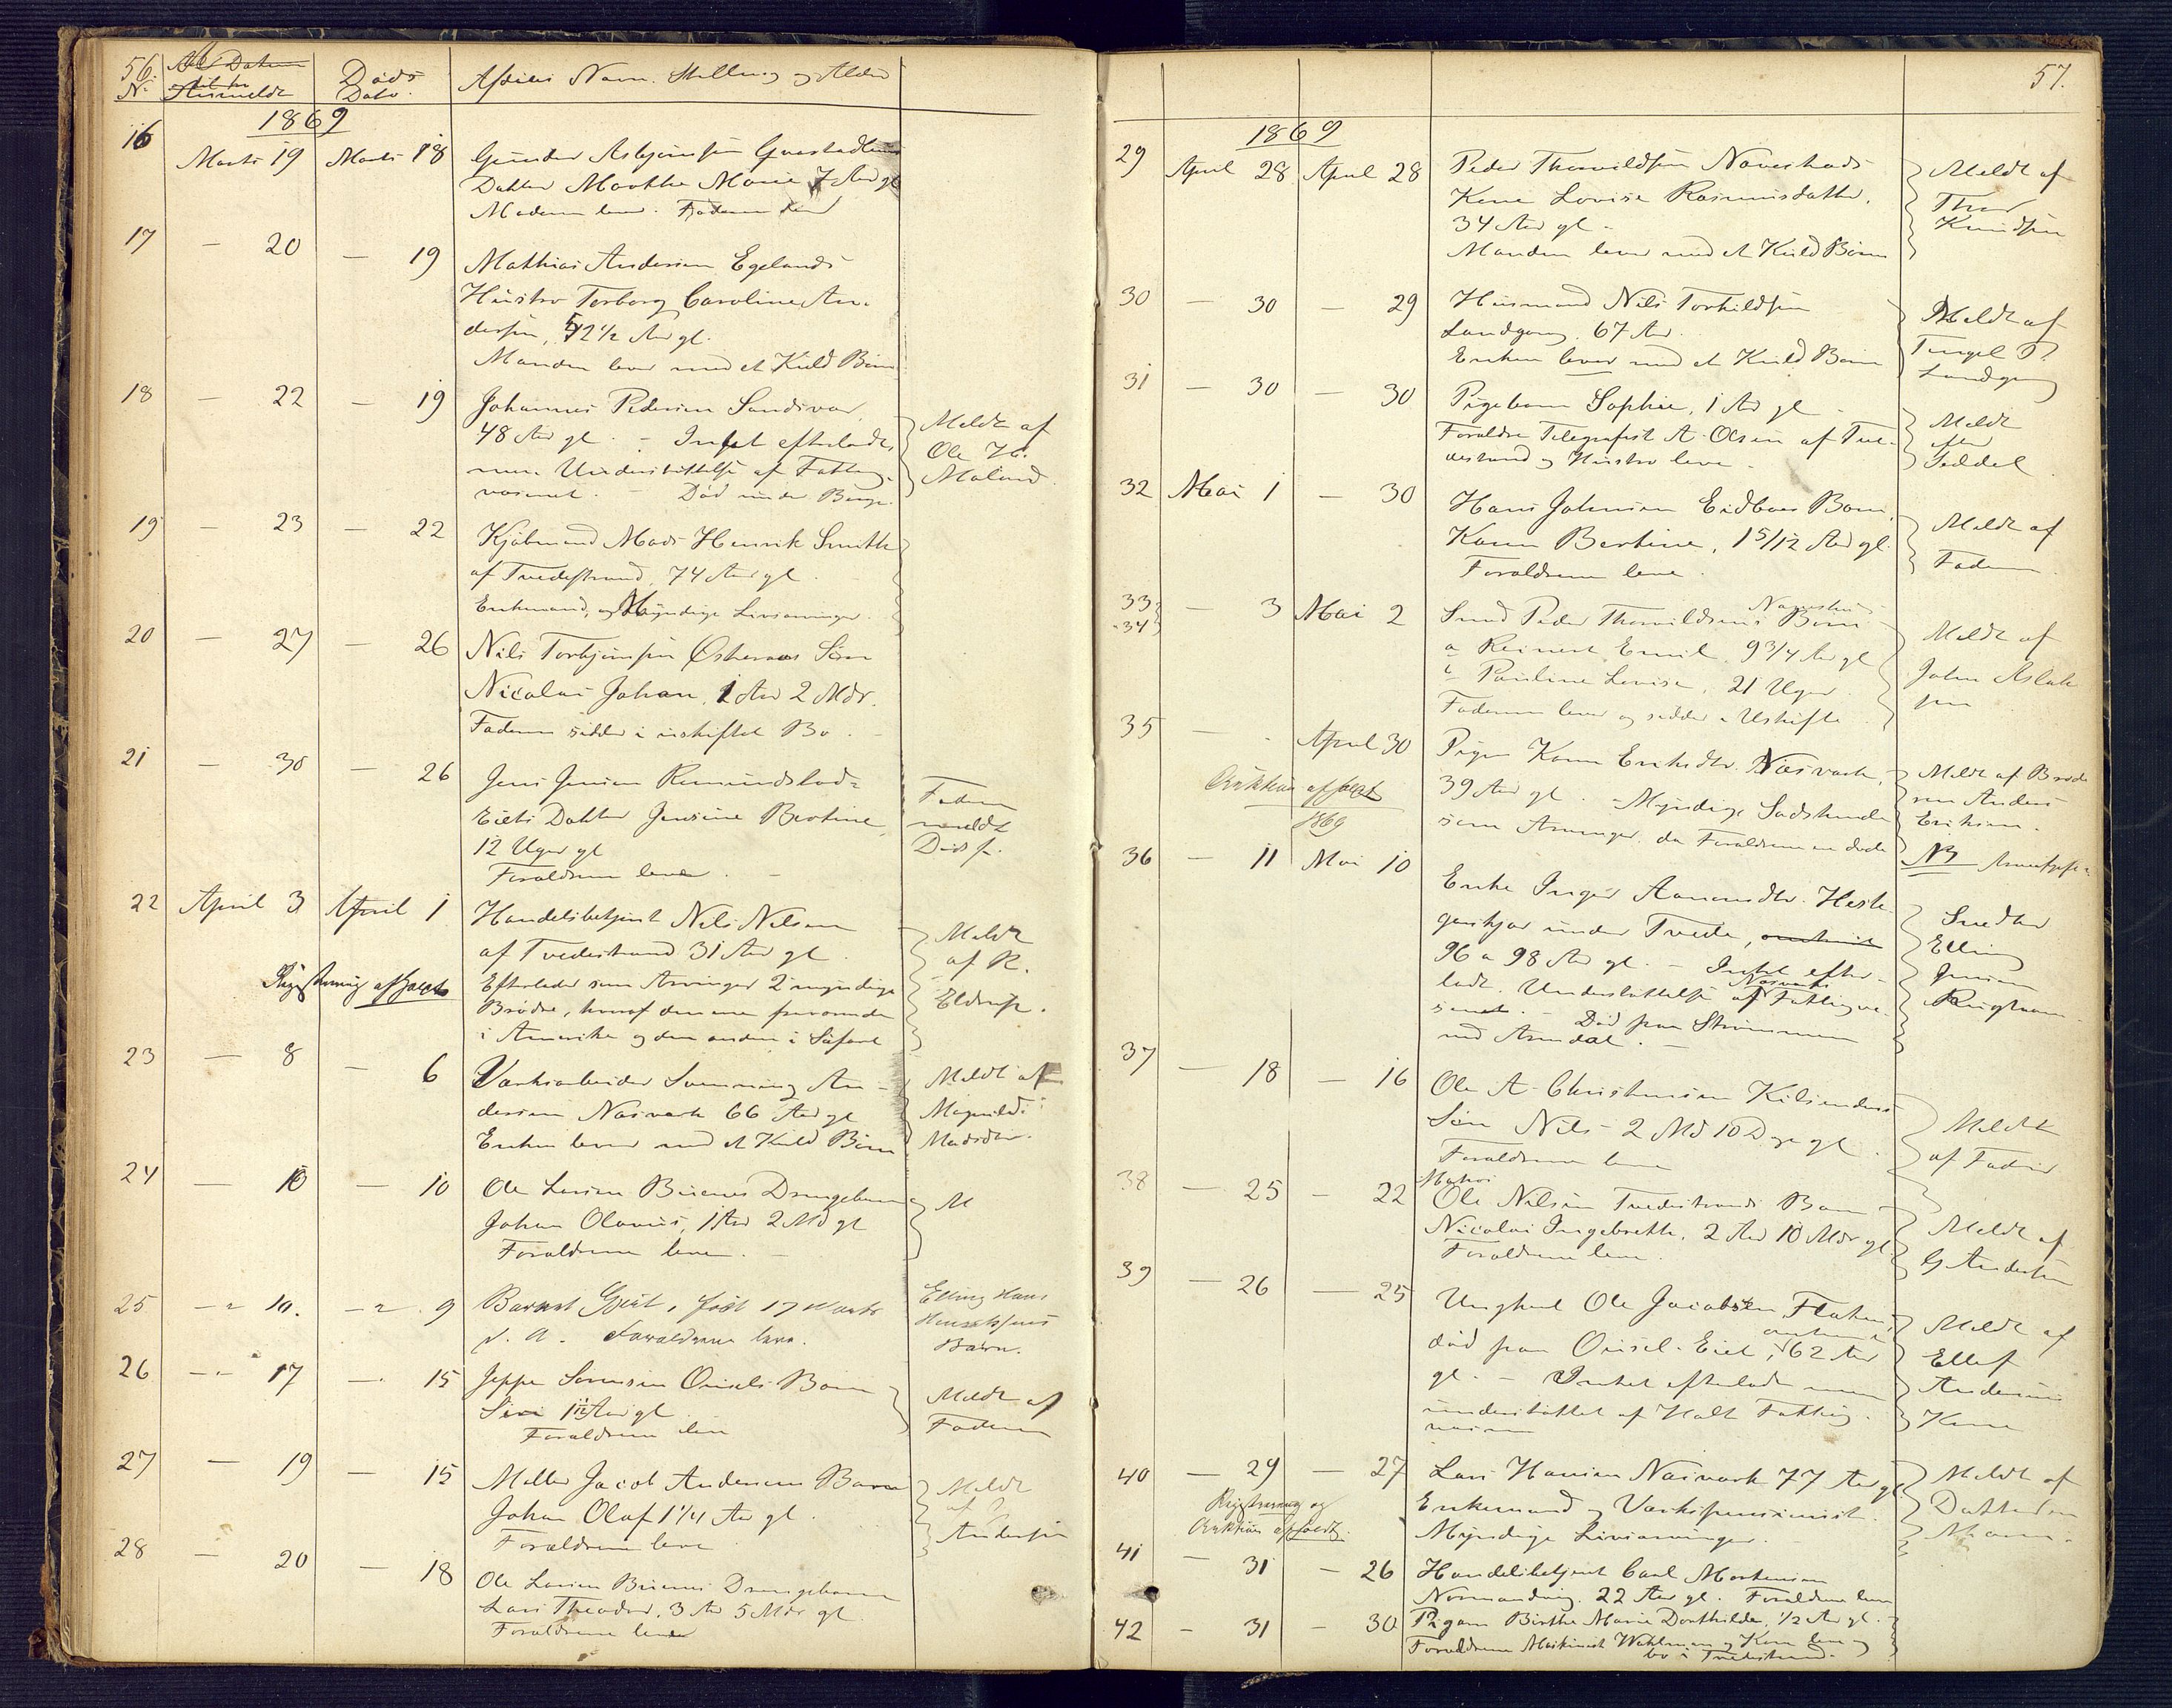 56.
No Anmeldt Døds Dato. Afdødes Navn, Stilling og Alder
1869
16 Marts 19 Marts 18 Gunder Asbjørnsen
Datter Marthe Marie 7 Aar gl
Moderen lever. Faderen
17 — 20 — 19 Mathias Andersen Egelands
Hustro Torborg Caroline An-
dersen, 52 1/2 Aar gl.
Manden lever med et Kuld Børn
18 — 22 — 19 Johannes Pedersen Sandsvar,
48 Aar gl. – Intet efterladt
men Understøttelse af Fattig-
væsenet. – Død under
Meldt af
Ole H.
Maland.
19 — 23 — 22 Kjøbmand Mads Henrik Smith
af Tvedestrand, 74 Aar gl.
Enkemand, og Myndige Livsarvinger.
20 — 27 — 26 Nils Torbjørnsen Østeraas Søn
Nicolai Johan, 1 Aar 2 Mdr.
Faderen sidder i uskiftet Bo.
21 — 30 — 26 Jens Jensen
Eiets Datter Jensine Bertine,
12 Uger gl
Forældrene lever. –
Faderen
meldt
Dødsf.
22 April 3 April 1 Handelsbetjent Nils Nilsen
af Tvedestrand 31 Aar gl.
Registrering afholdt
Efterlader som Arvinger 2 myndige
Brødre, hvoraf den ene
i Amerika og den anden i Søfart
Meldt
af R.
Eldrup.
23 — 8 — 6 Værksarbeider An-
dersen Næsværk 66 Aar gl
Enken lever med et Kuld Børn
Meldt af
Magnild
Madsdtr.
24 — 10 — 10 Ole Larsen Drengebarn
Johan Olavus, 1 Aar 2 Md gl
Forældrene lever. –
M
25 — " 10. — " 9 Barnet født 17 Marts
d. A. Forældrene leve.
Elling Hans
Henriksens
Barn.
26 — " 17 — 15 Jeppe Sørensen Barn
11/12 Aar gl
Forældrene leve
Meldt af
Faderen
27 — 19 — 15 Møller Jacob Andersens Barn
Johan Olaf 1 1/4 Aar gl.
Forældrene leve
Meldt
af J.
Andersen
28 — 20 — 18 Ole Larsen Drengebarn
Lars Theodor, 3 Ar 5 Mdr gl
Forældrene lever
57.
1869
29 April 28 April 28 Peder Thorvildsen Navestads
Kone Lovise Rasmusdatter,
34 Aar gl –
Manden lever med et Kuld Børn
Meldt af
Thor
Knudsen
30 — 30 — 29 Husmand Nils Torkildsen
Landgang, 67 Aar.
Enken lever med et Kuld Børn
Meldt af
Tengel T.
Landgang
31 — 30 — 30 Pigebarn Sophie, 1 Aar gl
Forældre Telegrafist A. Olsen af Tve-
destrand og Hustro leve –
Meldt
efter
Seddel
32 Mai 1 — 30 Hans Johnsen Eidbos Barn,
Karen Bertine, 1 5/12 Aar gl.
Forældrene leve.
Meldt af
Faderen
33 34 — 3 Mai 2 Smed Peder Thorvildsens Børn
a Reinert Emil, 9 3/4 Aar gl
b Pauline Lovise, 21 Uger.
Faderen lever og sidder i Uskifte
Meldt af
John Aslak
sen
35 — – April 30 Pigen Karen Eriksdtr. Næsværk,
Auktion afholdt
1869
39 Aar gl. – Myndige Sødskende
som Arvinger, da Forældrene ere døde
Meldt af Brode
ren Anders
Eriksen.
NB
36 — 11 Mai 10 Enke Inger Aanundtr. Heste-
under Tvede,
96 a 98 Aar gl. – Intet efter-
ladt. Understøttelse af Næsværks Fattigvæ-
senet. – Død paa Strømmen
ved Arendal. –
Snedker
Elling
Jensen
37 — 18 — 16 Ole A. Christensen
Søn Nils 2 Md 10 Dage gl.
Forældrene leve
Meldt
af Faderen
38 — 25 — 22 Ole Nilsen Tvedestrands Barn
Nicolai Ingebreth, 2 Aar 10 Mdr gl
Forældrene leve.
Meldt af
G. Andersen
39 — 26 — 25 Ungkarl Ole Jacobsen Flaten,
død paa Eiet, omtrent 62 Aar
gl. – Intet efterladt men
understøttet af Holt Fattig-
væsen
Meldt af
Ellef
Andersens
Kone
40 — 29 — 27 Lars Hansen Næsværk 77 Aar gl
Registrering og
Auktion afholdt.
Enkemand og Værkspensionist.
Myndige Livsarvinger. –
Meldt af
Datteren
41 — 31 — 26 Handelsbetjent Carl Mortensen
Normanvig 22 Aar gl. Forældrene leve
42 — 31 — 30 Pigen Birthe Marie Dorthilde, 1/2 Aar gl.
Forældrene Maskinist og Kone leve og
bo i Tvedestrand.